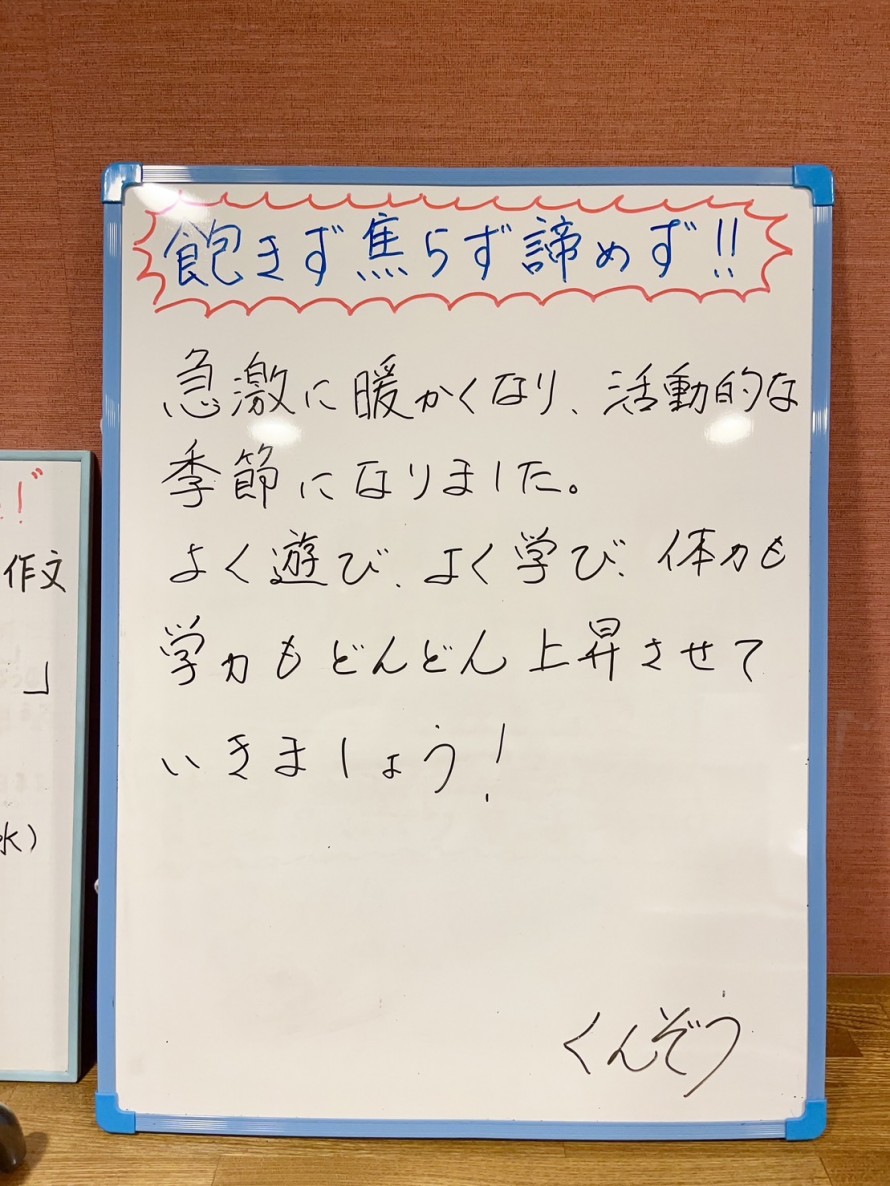 飽きず焦らず諦めず!!
急激に暖かくなり、活動的な
季節になりました。
よく遊び、よく学び、体力も
学力もどんどん上昇させて
いきましょう!
くんぞう
!
作文
」
水)